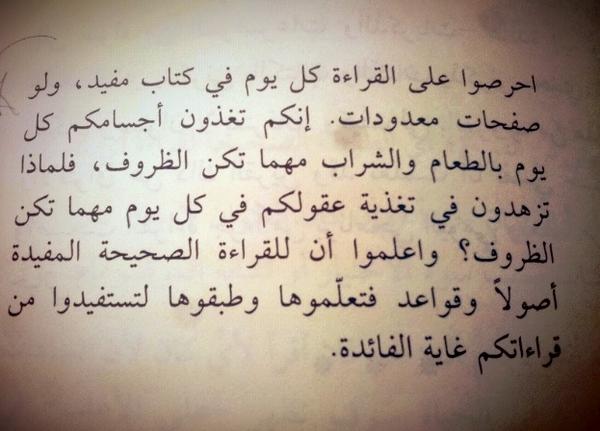 احرصوا على القراءة كل يوم في كتاب مفيد، ولو
صفحات معدودات. إنكم تغذون أجسامكم كل
يوم بالطعام والشراب مهما تكن الظروف، فلماذا
تزهدون في تغذية عقولكم في كل يوم مهما تكن
الظروف؟ واعلموا أن للقراءة الصحيحة المفيدة
أصولاً وقواعد فتعلّموها وطبقوها لتستفيدوا من
قراءاتكم غاية الفائدة.